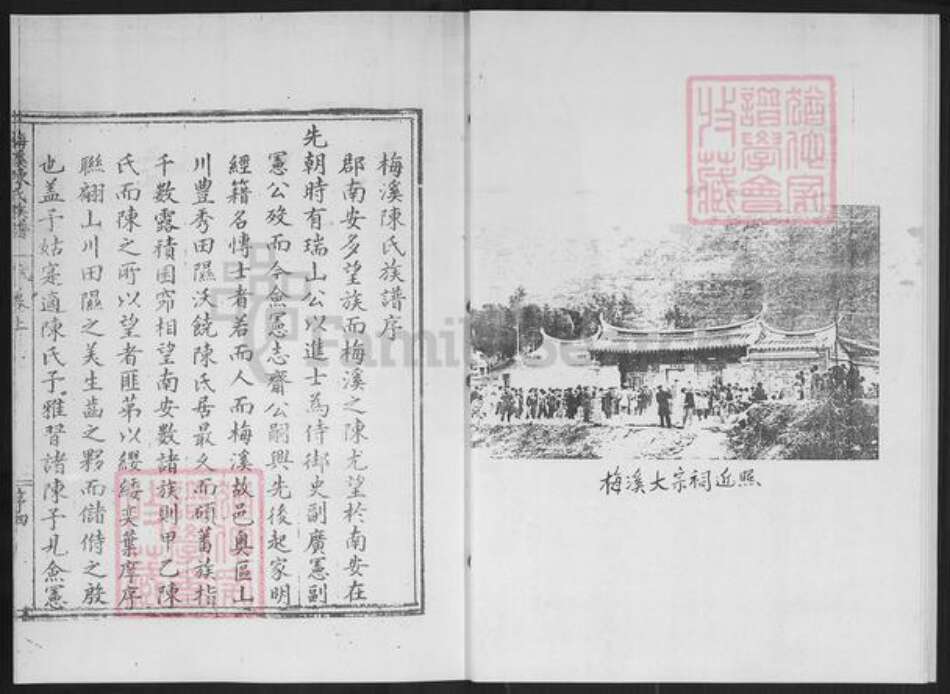 梅溪大宗祠近照
梅溪陳氏族譜序
郡南安多望族而梅溪之陳尤望於南安在
先朝時有瑞山公以進士為侍御史副廣憲副
憲公歿而今僉憲志齋公嗣興先後起家明
經籍名博士者若而人而梅溪故邑奧區山
川豐秀田隰沃饒陳氏居最久而碩蕃族指
千數露積囷窌相望南安數諸族則甲乙陳
氏而陳之所以望者匪第以纓緌奕葉庠序
聯翩山川田隰之美生齒之夥而儲偫之殷
也蓋予姑寔適陳氏子雅習諸陳子凡僉憲
梅溪陳氏族譜
卷上
序四